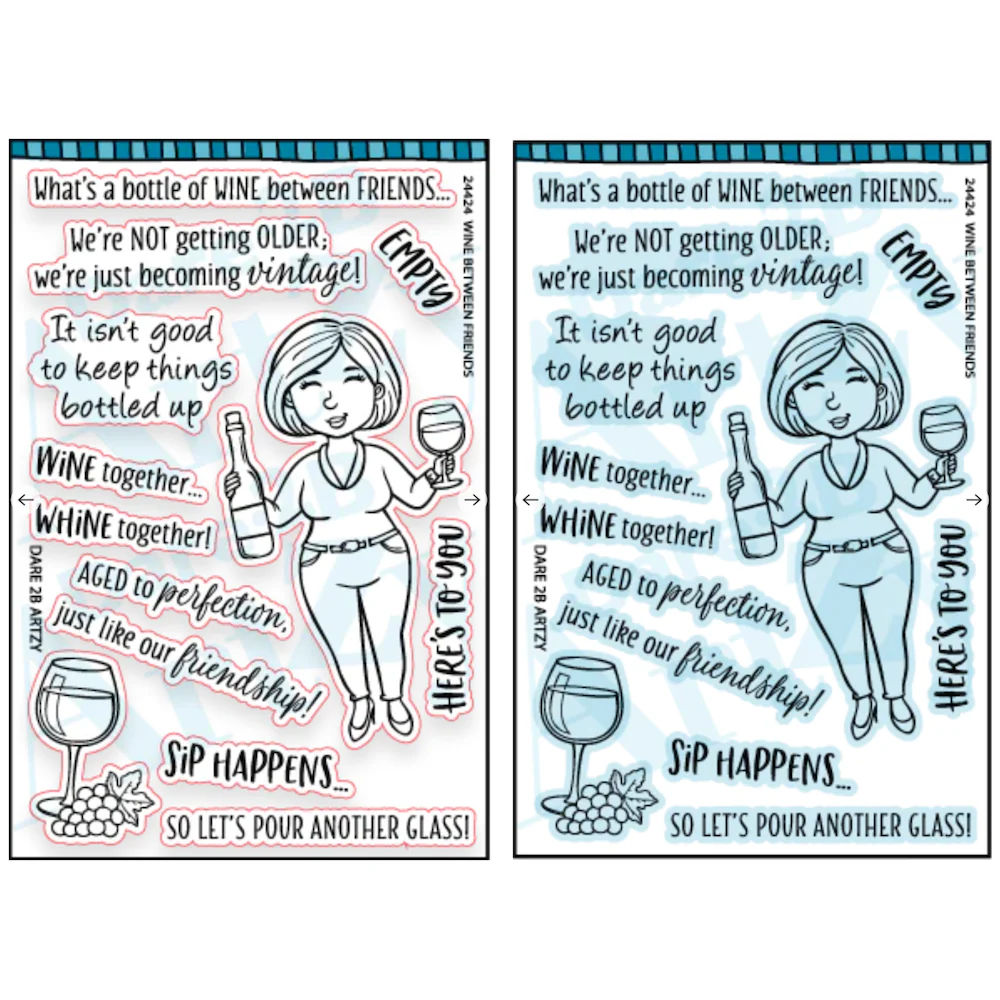 What's a bottle of WINE between FRIENDS...
We're NOT getting OLDER;
we're just becoming vintage!
EMPTY
24424 WINE BETWEEN FRIENDS
It isn't good
to keep things
bottled up
WiNE together...
WHiNE together!
DARE 2B ARTZY
AGED to perfection,
just like our friendship!
HERE'S TO YOU
SiP HAPPENS...
SO LET'S POUR ANOTHER GLASS!
What's a bottle of WINE between FRIENDS...
We're NOT getting OLDER;
we're just becoming vintage!
EMPTY
24424 WINE BETWEEN FRIENDS
It isn't good
to keep things
bottled up
WiNE together...
WHiNE together!
DARE 2B ARTZY
AGED to perfection,
just like our friendship!
HERE'S TO YOU
SiP HAPPENS...
SO LET'S POUR ANOTHER GLASS!